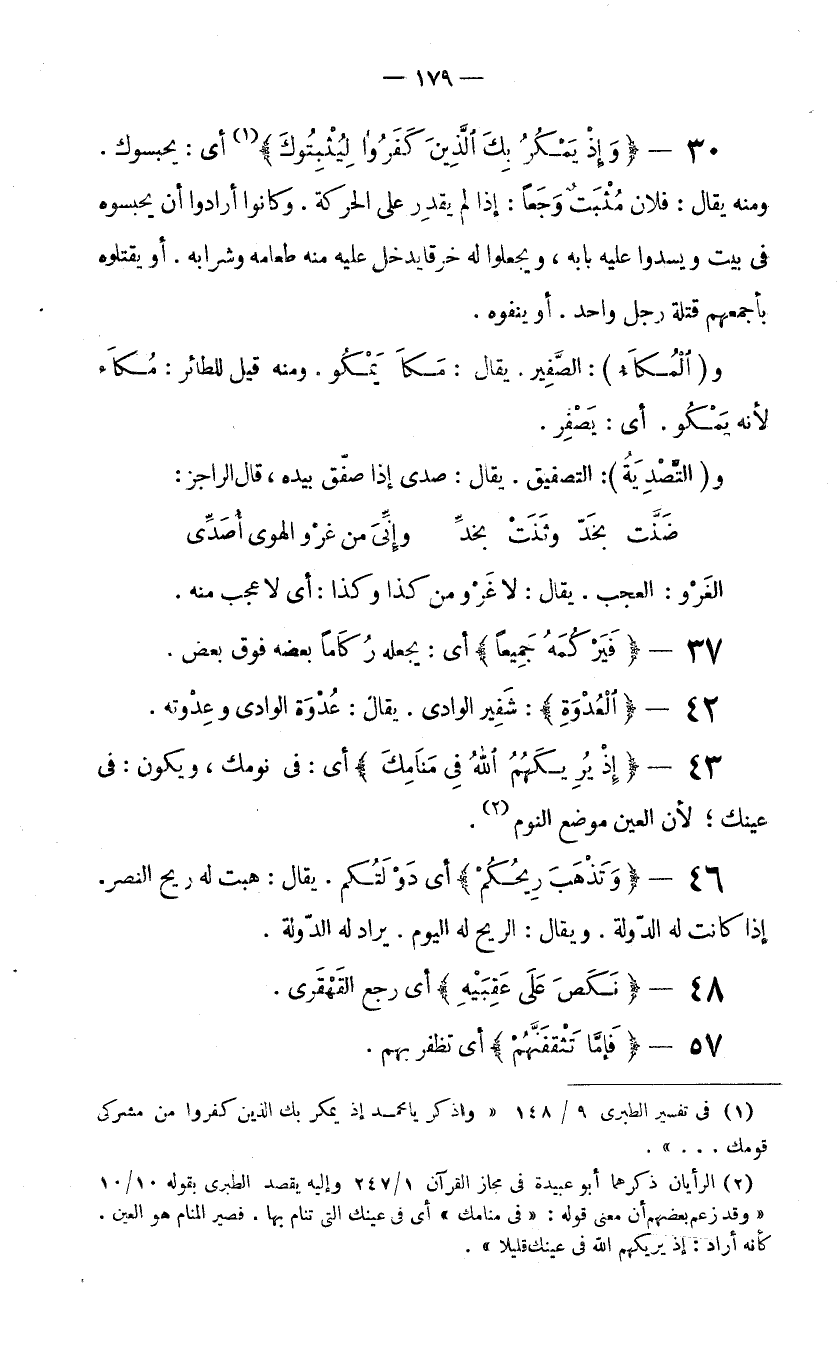 — ١٧٩ —
٣٠ — ﴿ وَإِذْ يَمْكُرُ بِكَ ٱلَّذِينَ كَفَرُوا لِيُثْبِتُوكَ ﴾(١) أى : يحبسوك .
ومنه يقال : فلان مُثْبَتٌ وَجَعاً : إذا لم يقدر على الحركة . وكانوا أرادوا أن يحبسوه
فى بيت ويسدوا عليه بابه ، ويجعلوا له خرقا يدخل عليه منه طعامه وشرابه . أو يقتلوه
بأجمعهم قتلة رجل واحد . أو ينفوه .
و ( ٱلْمُكاَء ) : الصَّفير . يقال : مَكاَ يَمْكُو . ومنه قيل للطائر : مُكاَّء
لأنه يَمْكُو . أى : يَصْفِر .
و ( التَّصْدِيَةُ ) : التصفيق . يقال : صدى إذا صفّق بيده ، قال الراجز :
ضَنَّت بخَدّ وثَنَتْ بخدٍّ وإنِّىَ من غرْو الهوى أُصَدِّى
الغَرْو : العجب . يقال : لا غَرْو من كذا وكذا : أى لا عجب منه .
٣٧ — ﴿ فَيَرْكُمَهُ جَمِيعاً ﴾ أى : يجعله رُكَاماً بعضه فوق بعض .
٤٢ — ﴿ ٱلْعُدْوَةِ ﴾ : شَفِير الوادى . يقال : عُدْوَة الوادى وعِدْوته .
٤٣ — ﴿ إِذْ يُرِيكَهُمُ ٱللهُ فِى مَنَامِكَ ﴾ أى : فى نومك ، ويكون : فى
عينك ؛ لأن العين موضع النوم (٢) .
٤٦ — ﴿ وَتَذْهَبَ رِيحُكُمْ ﴾ أى دَوْلَتُكم . يقال : هبت له ريح النصر.
إذا كانت له الدّولة . ويقال : الريح له اليوم . يراد له الدّولة .
٤٨ — ﴿ نَكَصَ عَلَى عَقِبَيْهِ ﴾ أى رجع القَهْقَرى .
٥٧ — ﴿ فَإِمَّا تَثْقَفَنَّهُمْ ﴾ أى تظفر بهم .
(١) فى تفسير الطبرى ٩ / ١٤٨ « واذكر يامحمد إذ يمكر بك الذين كفروا من مشركى
قومك . . . » .
(٢) الرأيان ذكرهما أبو عبيدة فى مجاز القرآن ١/٢٤٧ وإليه يقصد الطبرى بقوله ١٠/١٠
« وقد زعم بعضهم أن معنى قوله : « فى منامك » أى فى عينك التى تنام بها . فصير المنام هو العين .
كأنه أراد : إذ يريكهم الله فى عينك قليلا » .